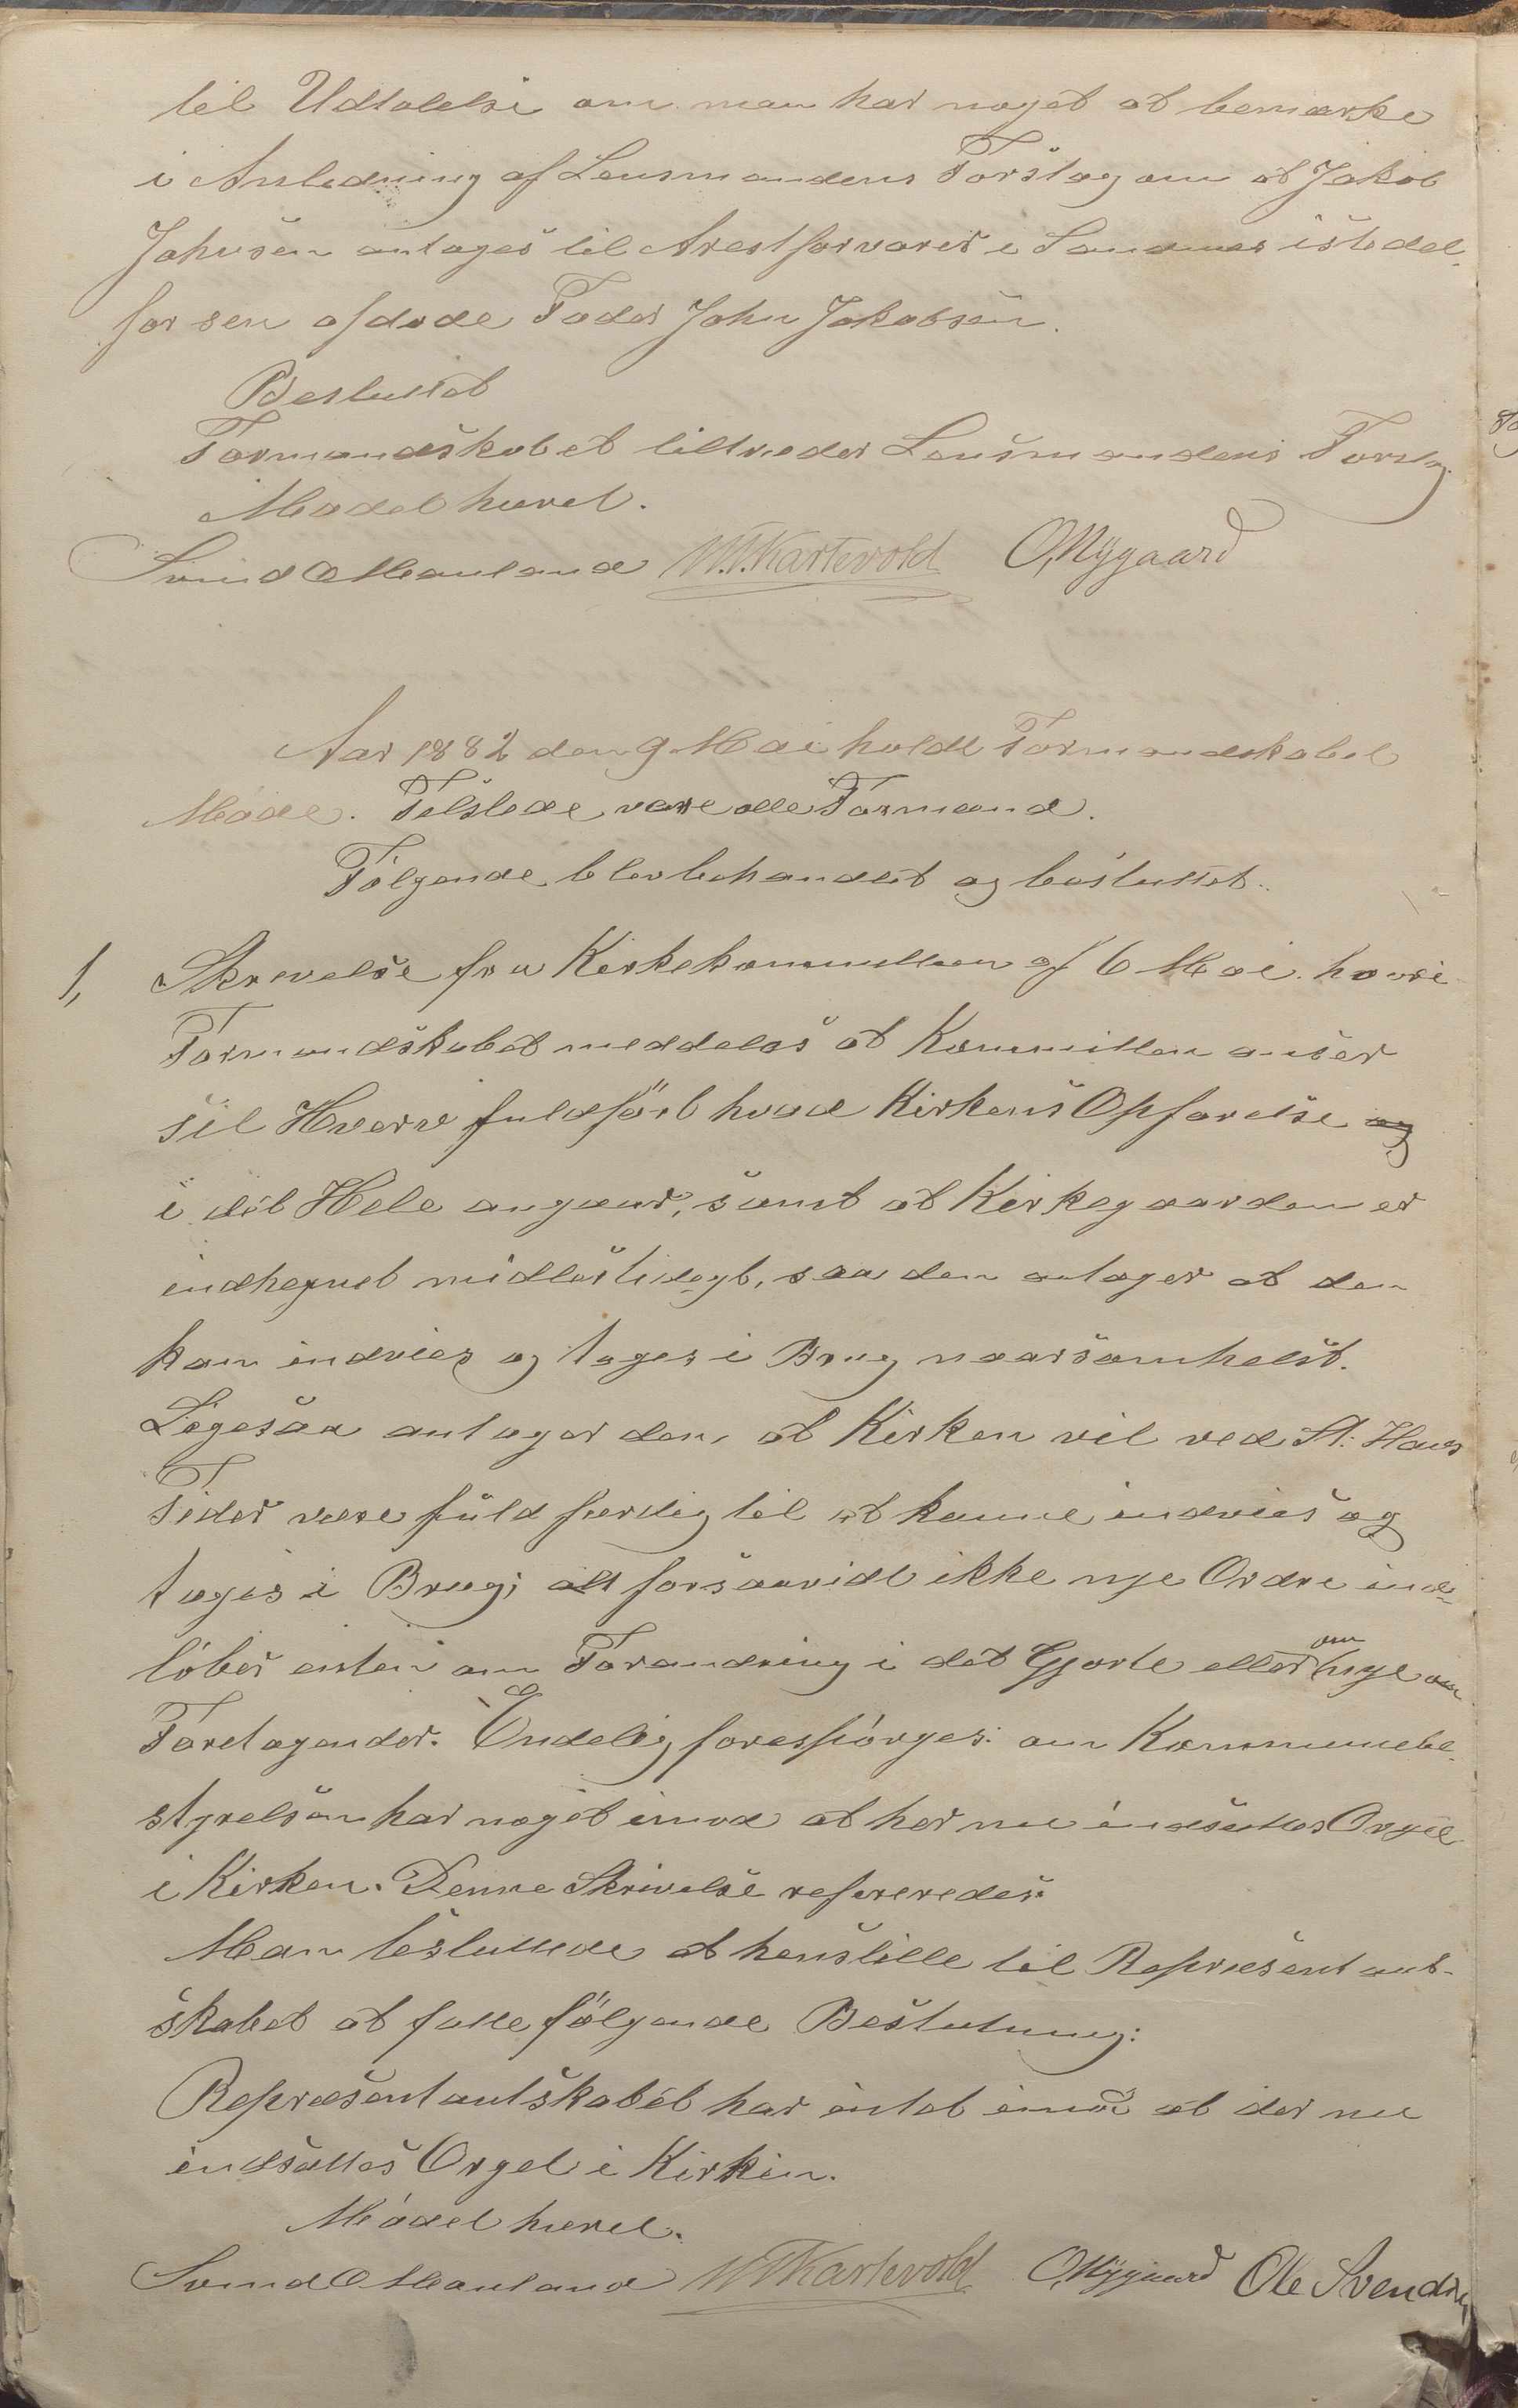 til Udtalelse om man har noget at bemærke
i Anledning af Lensmandens Forslag om at Jakob
Johnsen antages til Arestforvarer i Sandnes istedet
for sen afdøde Fader John Jakobsen.
Besluttet
Formandskabet tiltræder Lensmandens Forslag
Mødet hævet.
Svend O Hauland M.T. Kartevold O, Nygaard
Aar 1882 den 9 Mai holdt Formandskabet
Møde. Tilstede vare alle Formænd.
Følgende blev behandlet og besluttet.
1, Skrivelse fra Kirkekommitteen af 6 Mai. hvori
Formandskabet meddeles at Kommitteen anser
sit Hverv fuldført hvad Kirkens Opførelse og
i det Hele angaar, samt at Kirkegaarden er
indhegnet midlertidigt, saa den antager at den
kan indvies og tages i Brug naarsomhelst.
Ligesaa antager den, at Kirken vil ved St. Hans
Tider være fuld færdig til at kunne indvies og
tages i Brug; alt forsaavidt ikke nye Ordre ind-
løber enten om Forandring i det Gjorte eller om nye om
Foretagender. Endelig forespørges: om Kommunebe-
styrelsen har noget imod at her nu indsættes Orgel
i Kirken. Denne Skrivelse refereredes.
Man besluttede at henstille til Repræsentant-
skabet at fatte følgende Beslutning:
Repræsentantskabet har intet imod at der nu
indsættes Orgel i Kirken.
Mødet hævet.
Svend O Hauland M T Kartevold O, Nygaard Ole Svendsen